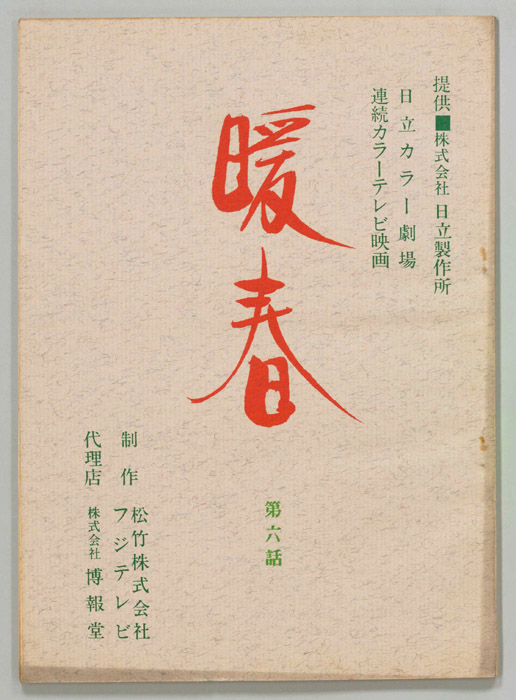 提供■株式会社 日立製作所
日立カラー劇場
連続カラーテレビ映画
暖春
第六話
制作 松竹株式会社
フジテレビ
代理店 株式会社 博報堂